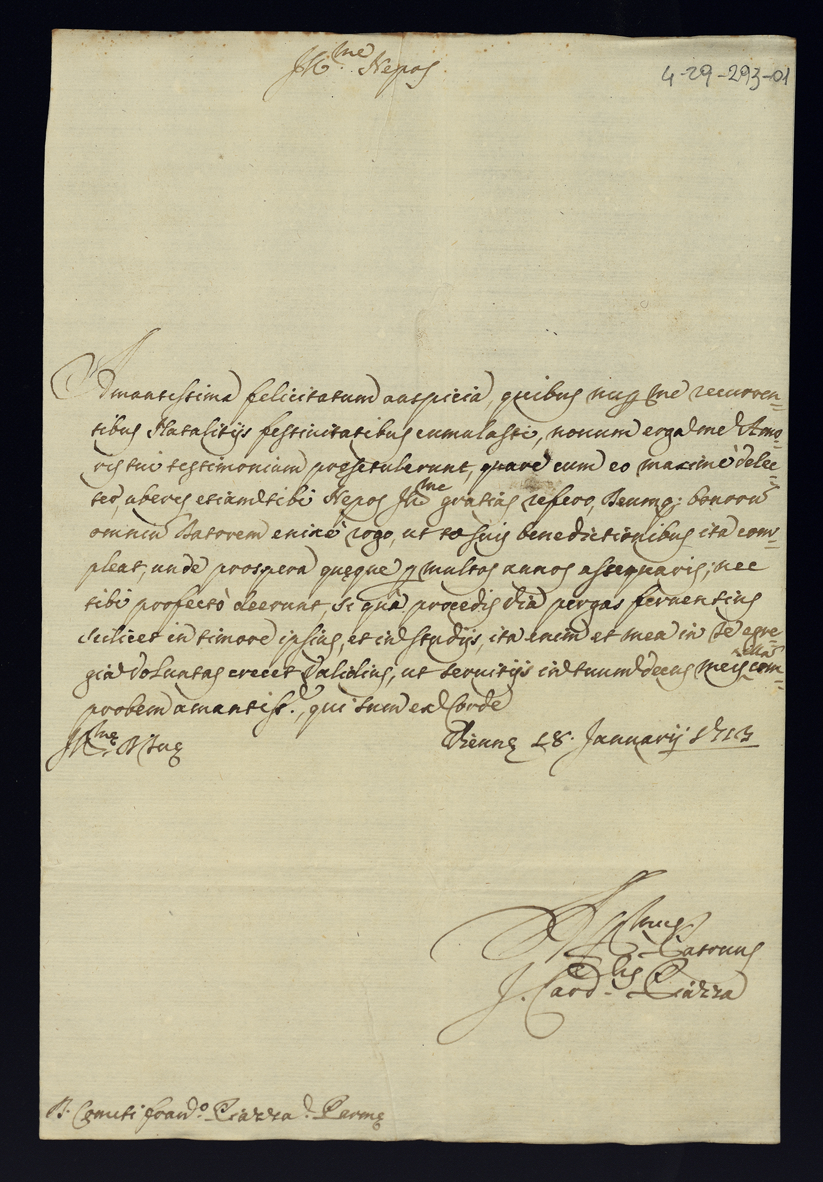 Ill.me Nepos
4-29-293-01
Amantissima felicitatum auspicia, quibus nup. me recurren=
tibus Natalitijs festivitatibus cumulasti, novum erga me Amo=
ris tui testimonium prętulerunt, quare cum eo maximè delec=
ter, uberes etiam tibi Nepos Ill.me gratias refero, Deumq; bonorũ
omniũ Datorem enixè rogo, ut te suis benedictionibus ita com=
pleat, unde prospera quęque p multos annos assequaris; nec
tibi profectò deerunt, si quâ procedis viâ pergas ferventius
scilicet in timore ipsius, et in studijs, ita enim et mea in te egre=
gia voluntas crescet validius, ut servitijs in tuum decus meis com=
probem amantiss., qui sum ex Corde
Ill.mę D. Tuę
Viennę 18. Januarij 1713
Patruus
J. Card.lis Piazza
D. Comiti Ferd.o Piazza Parmę